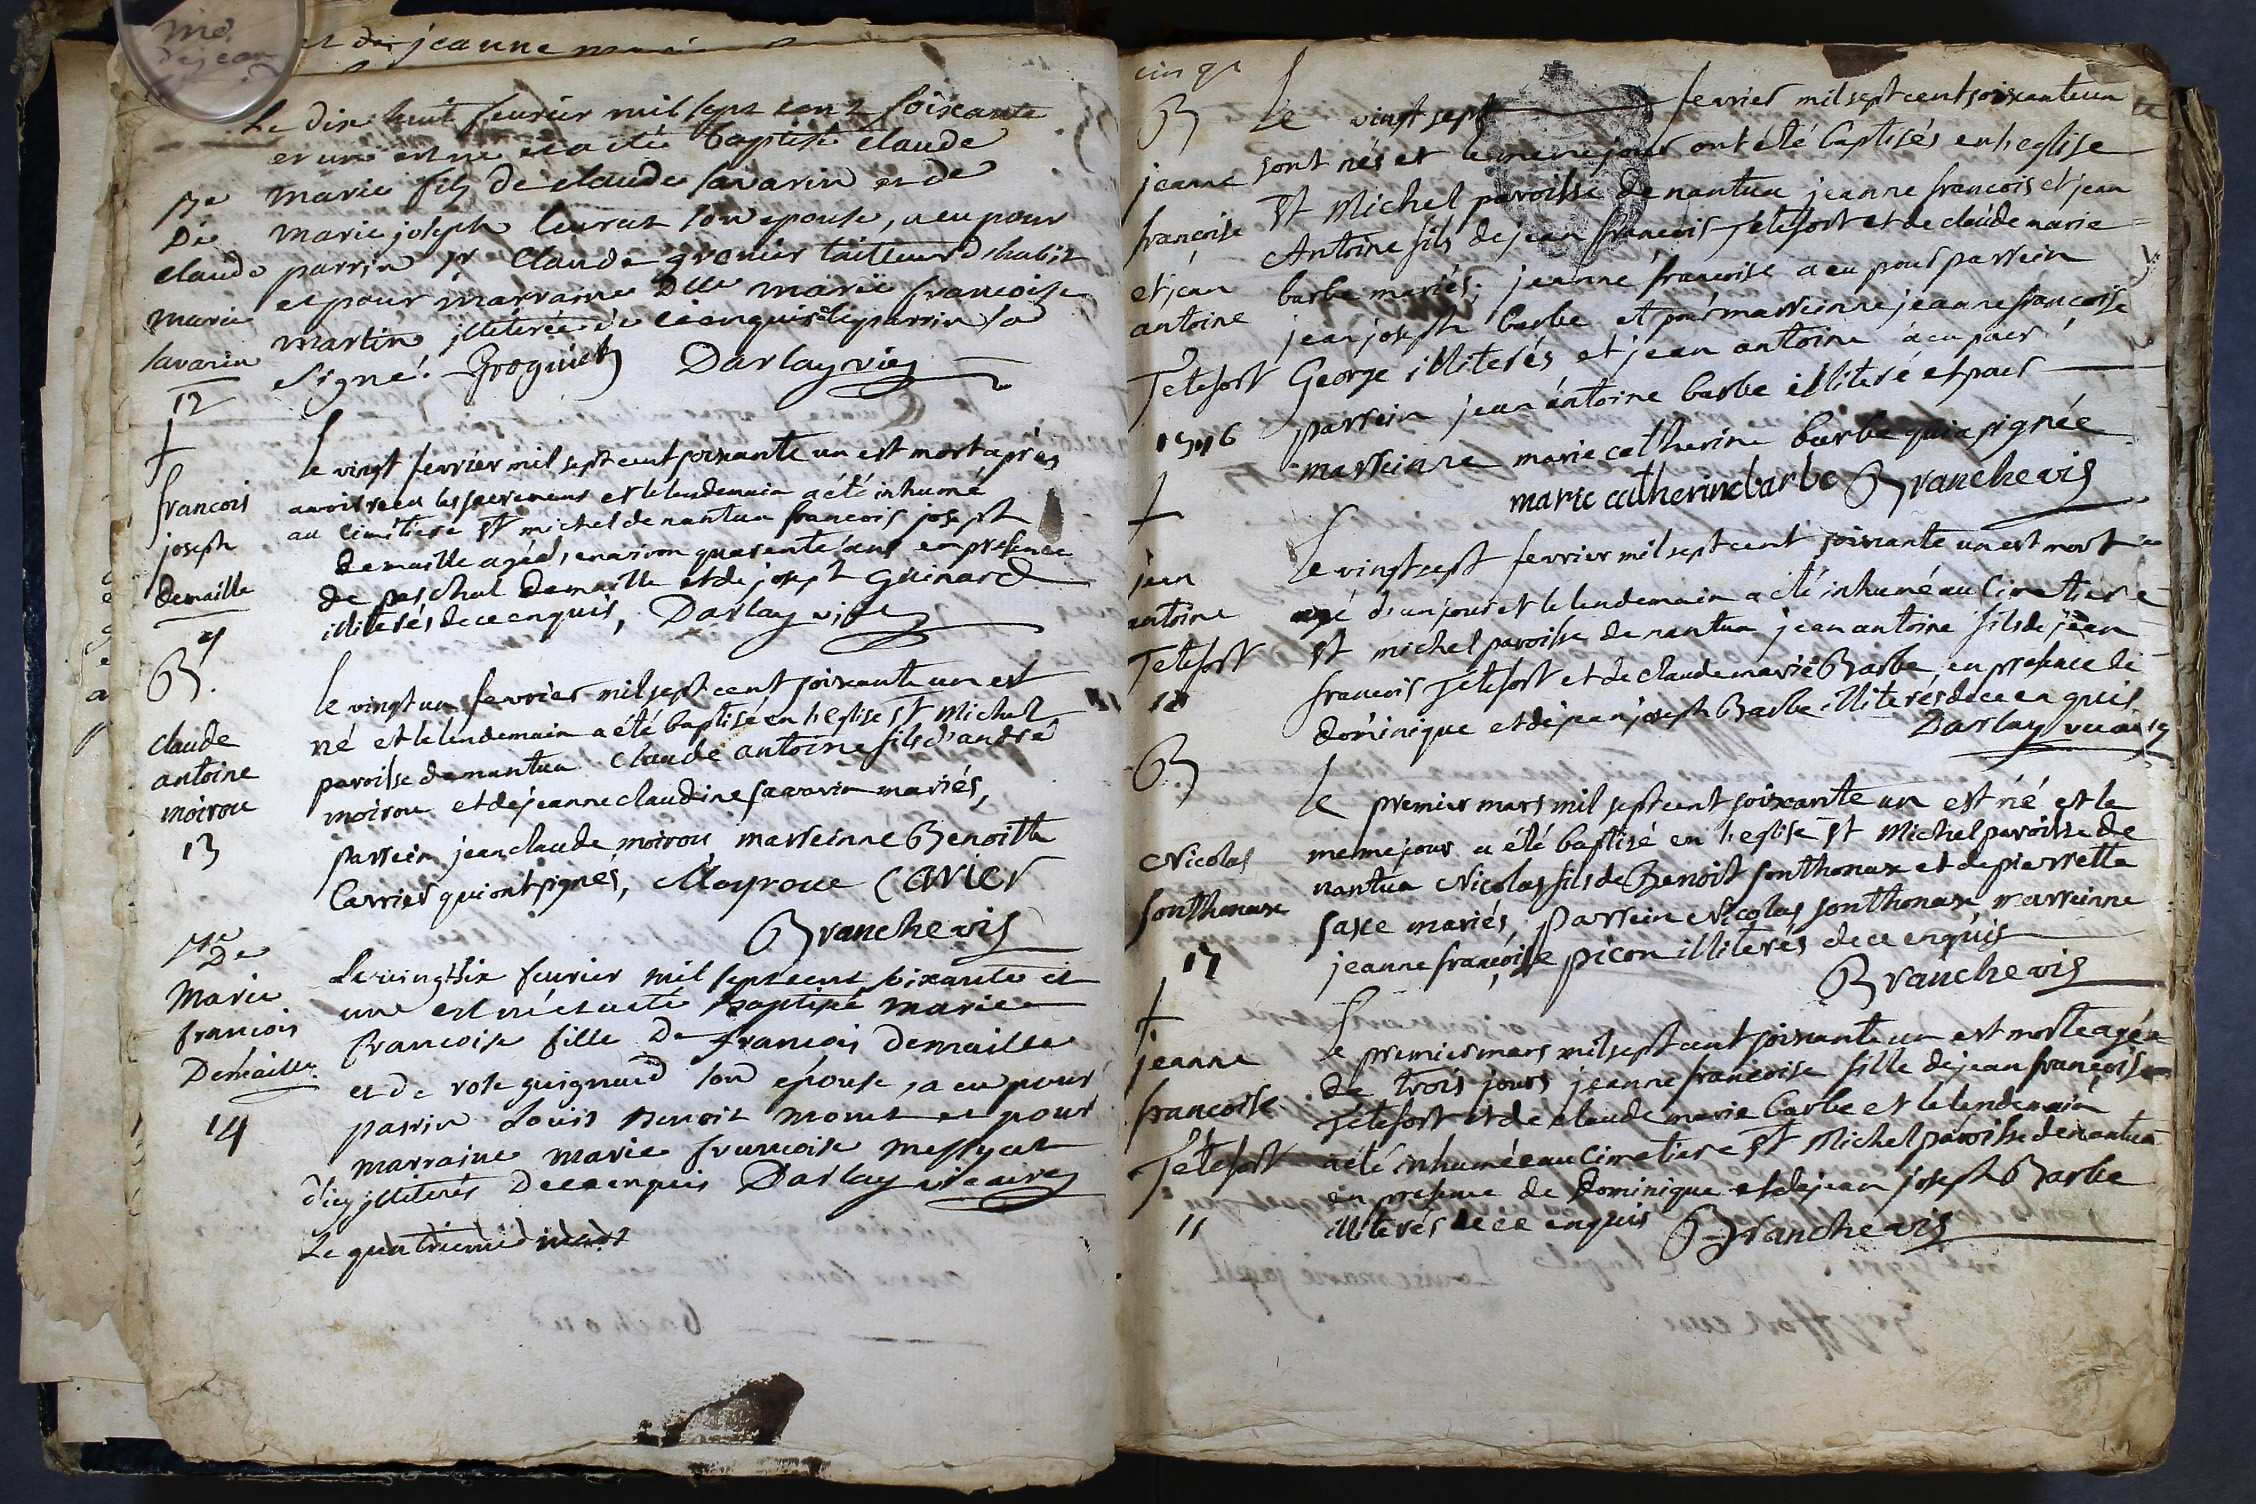 et de jeanne
Le dix huit feurier mil sept cent soixante
et un est ne et a été baptisé claude
marie fils de claude savarin et de
marie joseph leurat son epouse, a eu pour
parrin sr claude grenier tailleur d'habit
et pour marraine Dlle marie francoise
martin illiterée de ce enquise le parrin a
signé.
Darlay vic
Bme
De
claude
marie
savarin
12
le vingt fevrier mil sept cent soixante un est mort après
avoir recu les sacremens et le lendemain a été inhumé
au cimitiere st michel de nantua francois joseph
demaille agé d'environ quarente ans en presence
de paschal demaille et de joseph Guinard
illiterés de ce enquis, Darlay vic
†
francois
joseph
demaille
9
le vingt un fevrier mil sept cent soixante un est
né et le lendemain a été baptisé en l'eglise st Michel
paroisse de nantua claude antoine fils d'andré
moirou et de jeanne claudine savarin mariés,
parrein jean claude moirou marreinne Benoitte
Carrier qui ont signés, Mayroue Carier
Branche vic
B.
claude
antoine
moirou
13
Le vingt six feurier mil sept cent soixante et
un est né et a été baptisé marie
francoise fille De francois Demaille
et de rose guignard son épouse, a eu pour
parrin Louis Benoit monet et pour
marraine marie francoise messyat
d'icy illiterés De ce enquis Darlay vicaire
Bme
De
Marie
francois
Demaille
14
Le quatrieme
cinqe
Le vingt sept fevrier mil sept cent soixante un
sont nés et le meme jour ont été baptisés en l'eglise
st Michel paroisse de nantua jeanne francois et jean
Antoine fils de jean francois Tetefort et de claude marie
barbe mariés; jeanne francoise a eu pour parrein
jean joseph barbe et pour marreinne jeanne francoise
George illiterés et jean antoine a eu pour
parrein jean antoine barbe illiteré et pour
marreinne marie catherine barbe qui a signée
marie catherine barbe Branche vic
B
jeanne
francoise
et jean
antoine
Tetefort
15 16
Le vingt sept fevrier mil sept cent soixante un est mort
agé d'un jour et le lendemain a été inhumé au Cimetiere
st michel paroisse de nantua jean antoine fils de jean
francois Tetefort et de claude marie Barbe en presence de
dominique et de jean joseph Barbe illiterés de ce enquis
Darlay
†
jean
antoine
Tetefort
10
Le premier mars mil sept cent soixante un est né et le
meme jour a été baptisé en l'eglise st Michel paroisse de
nantua Nicolas fils de Benoit sonthonax et de pierrette
saxe mariés, parrein Nicolas sonthonax marreinne
jeanne francoise picon illiterés de ce enquis
Branche vic
B
Nicolas
sonthonax
17
Le premier mars mil sept cent soixante un est morte agée
de trois jours jeanne francoise fille de jean francois
Tetefort et de claude marie barbe et le lendemain
a été inhumée au Cimetiere st Michel paroisse de nantua
en presence de Dominique et de jean joseph Barbe
illiterés de ce enquis Branche vic
†
jeanne
francoise
Tetefort
11